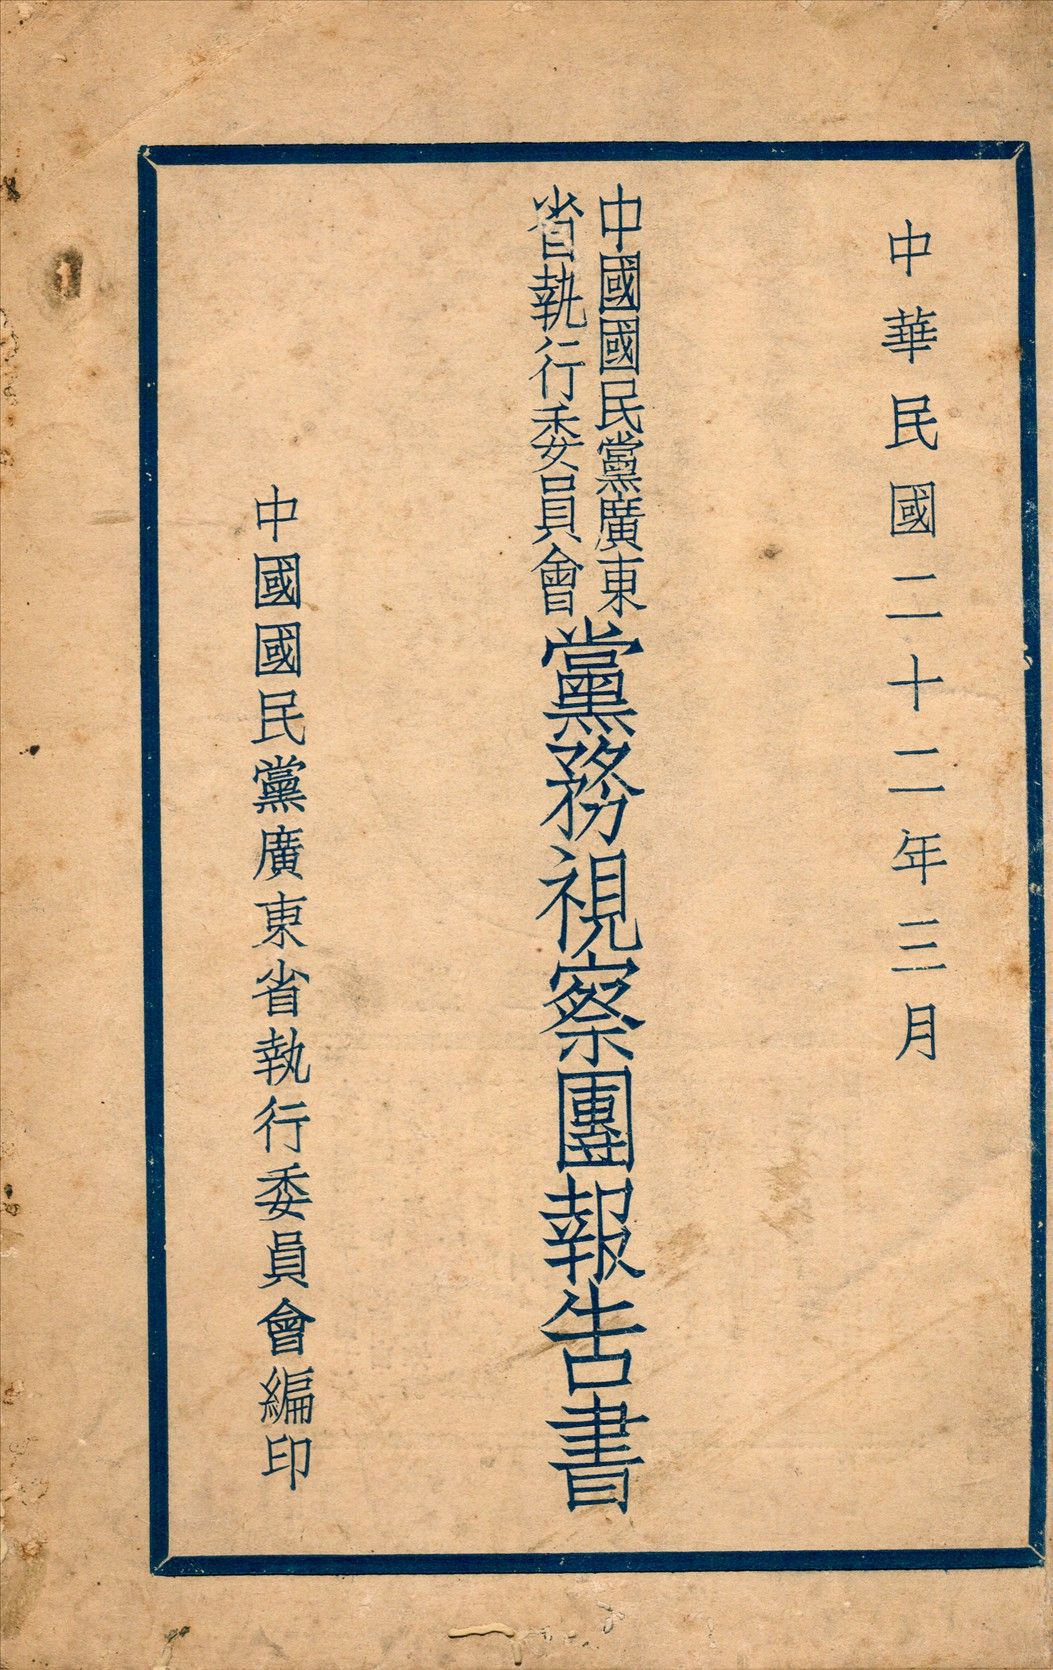 中華民國二十二年三月
中國國民黨廣東
省執行委員會
黨務視察團報告書
中國國民黨廣東省執行委員會編印